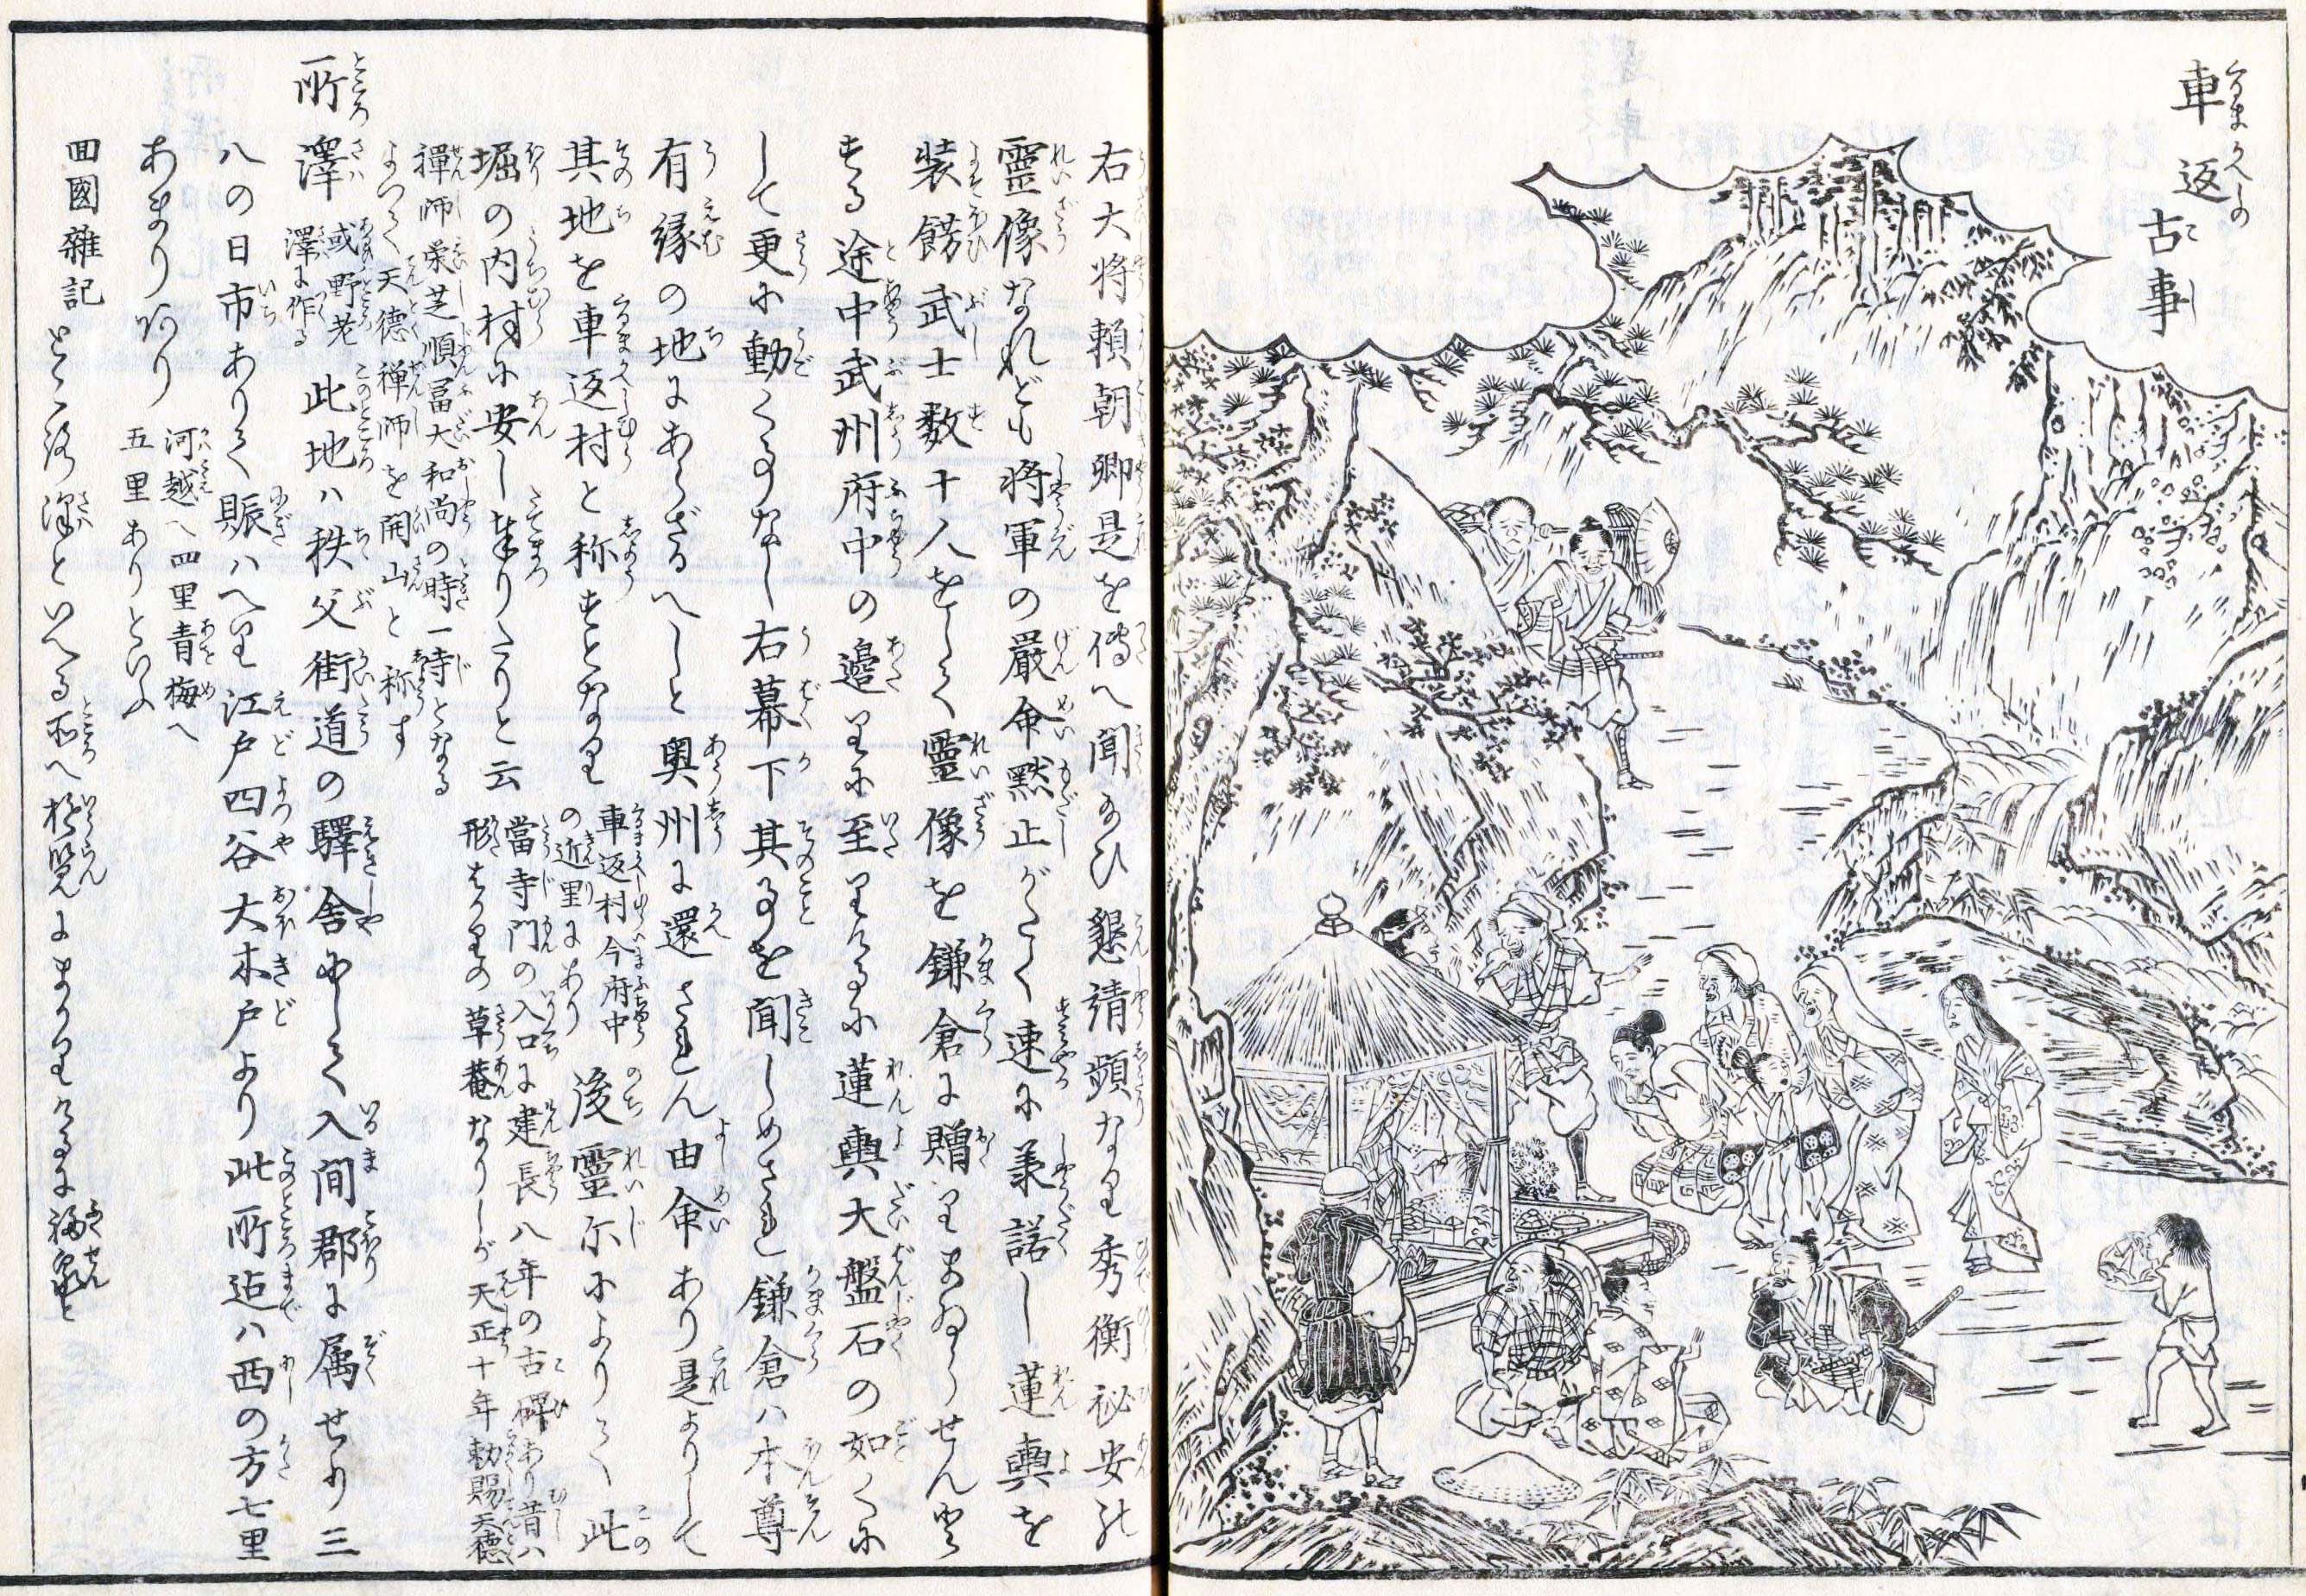 車返古事
くるまがへしの こじ
右大将頼朝卿是を傳へ聞給ひ懇請頻なり秀衡祕安の
靈像なれども将軍の嚴命默止がたく速に兼諾し蓮輿を
装餝武士数十人をして靈像を鎌倉に贈りまゐらせんと
する途中武州府中の邊りに至りけるに蓮輿大盤石の如くに
して更に動くことなし右幕下其ことを聞しめされ鎌倉ハ本尊
有縁の地にあらざるへしと奥州に還されん由命あり是よりして
其地を車返村と称すとなり 車返村今府中
の近里にあり 後靈尓によりて此
堀の内村に安し奉りたりと云 當寺門の入口に建長八年の古碑あり昔ハ
形はかりの草菴なりしが天正十年勅賜天德
禪師栄芝順冨大和尚の時一寺となる
よつて天德禅師を開山と称す
所澤 或野老
澤に作る 此地ハ秩父街道の驛舎にして入間郡に属せり三
八の日市ありて賑ハへり江戸四谷大木戸より此所迠ハ西の方七里
あまりあり 河越へ四里青梅へ
五里ありといふ
回國雜記 ところ澤といへる所へ遊覧にまかりけるに福泉と